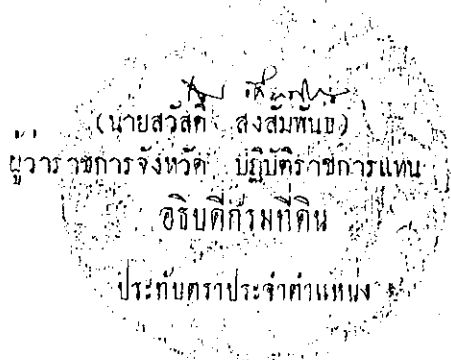 (นายสวัสดิ์ ส่งสัมพันธ์)
ผู้ว่าราชการจังหวัด ปฏิบัติราชการแทน
อธิบดีกรมที่ดิน
ประทับตราประจำตำแหน่ง